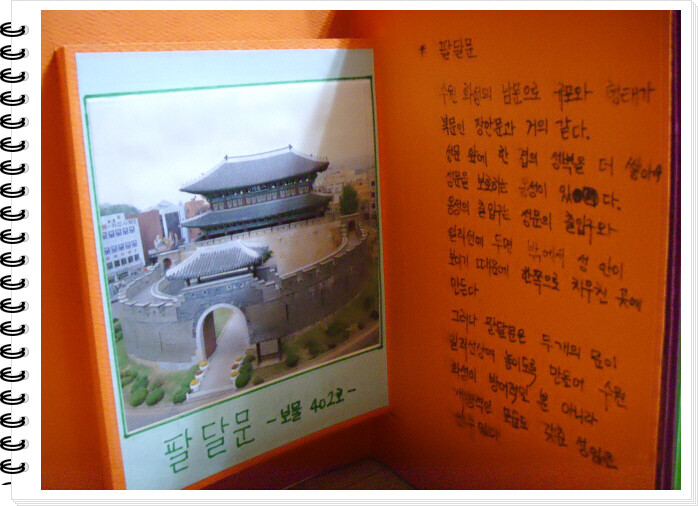 팔달문 -보물 402호-
* 팔달문
수원 화성의 남문으로 규모와 형태가
북문인 장안문과 거의 같다.
성문 앞에 한 겹의 성벽을 더 쌓아
성문을 보호하는 옹성이 있다.
옹성의 출입구는 성문의 출입구와
일직선에 두면 밖에서 성 안이
보이기 때문에 한쪽으로 치우친 곳에
만든다
그러나 팔달문은 두개의 문이
일직선상에 놓이도록 만들어 수원
화성이 방어적인 본 아니라
모습도 갖춘 성임을